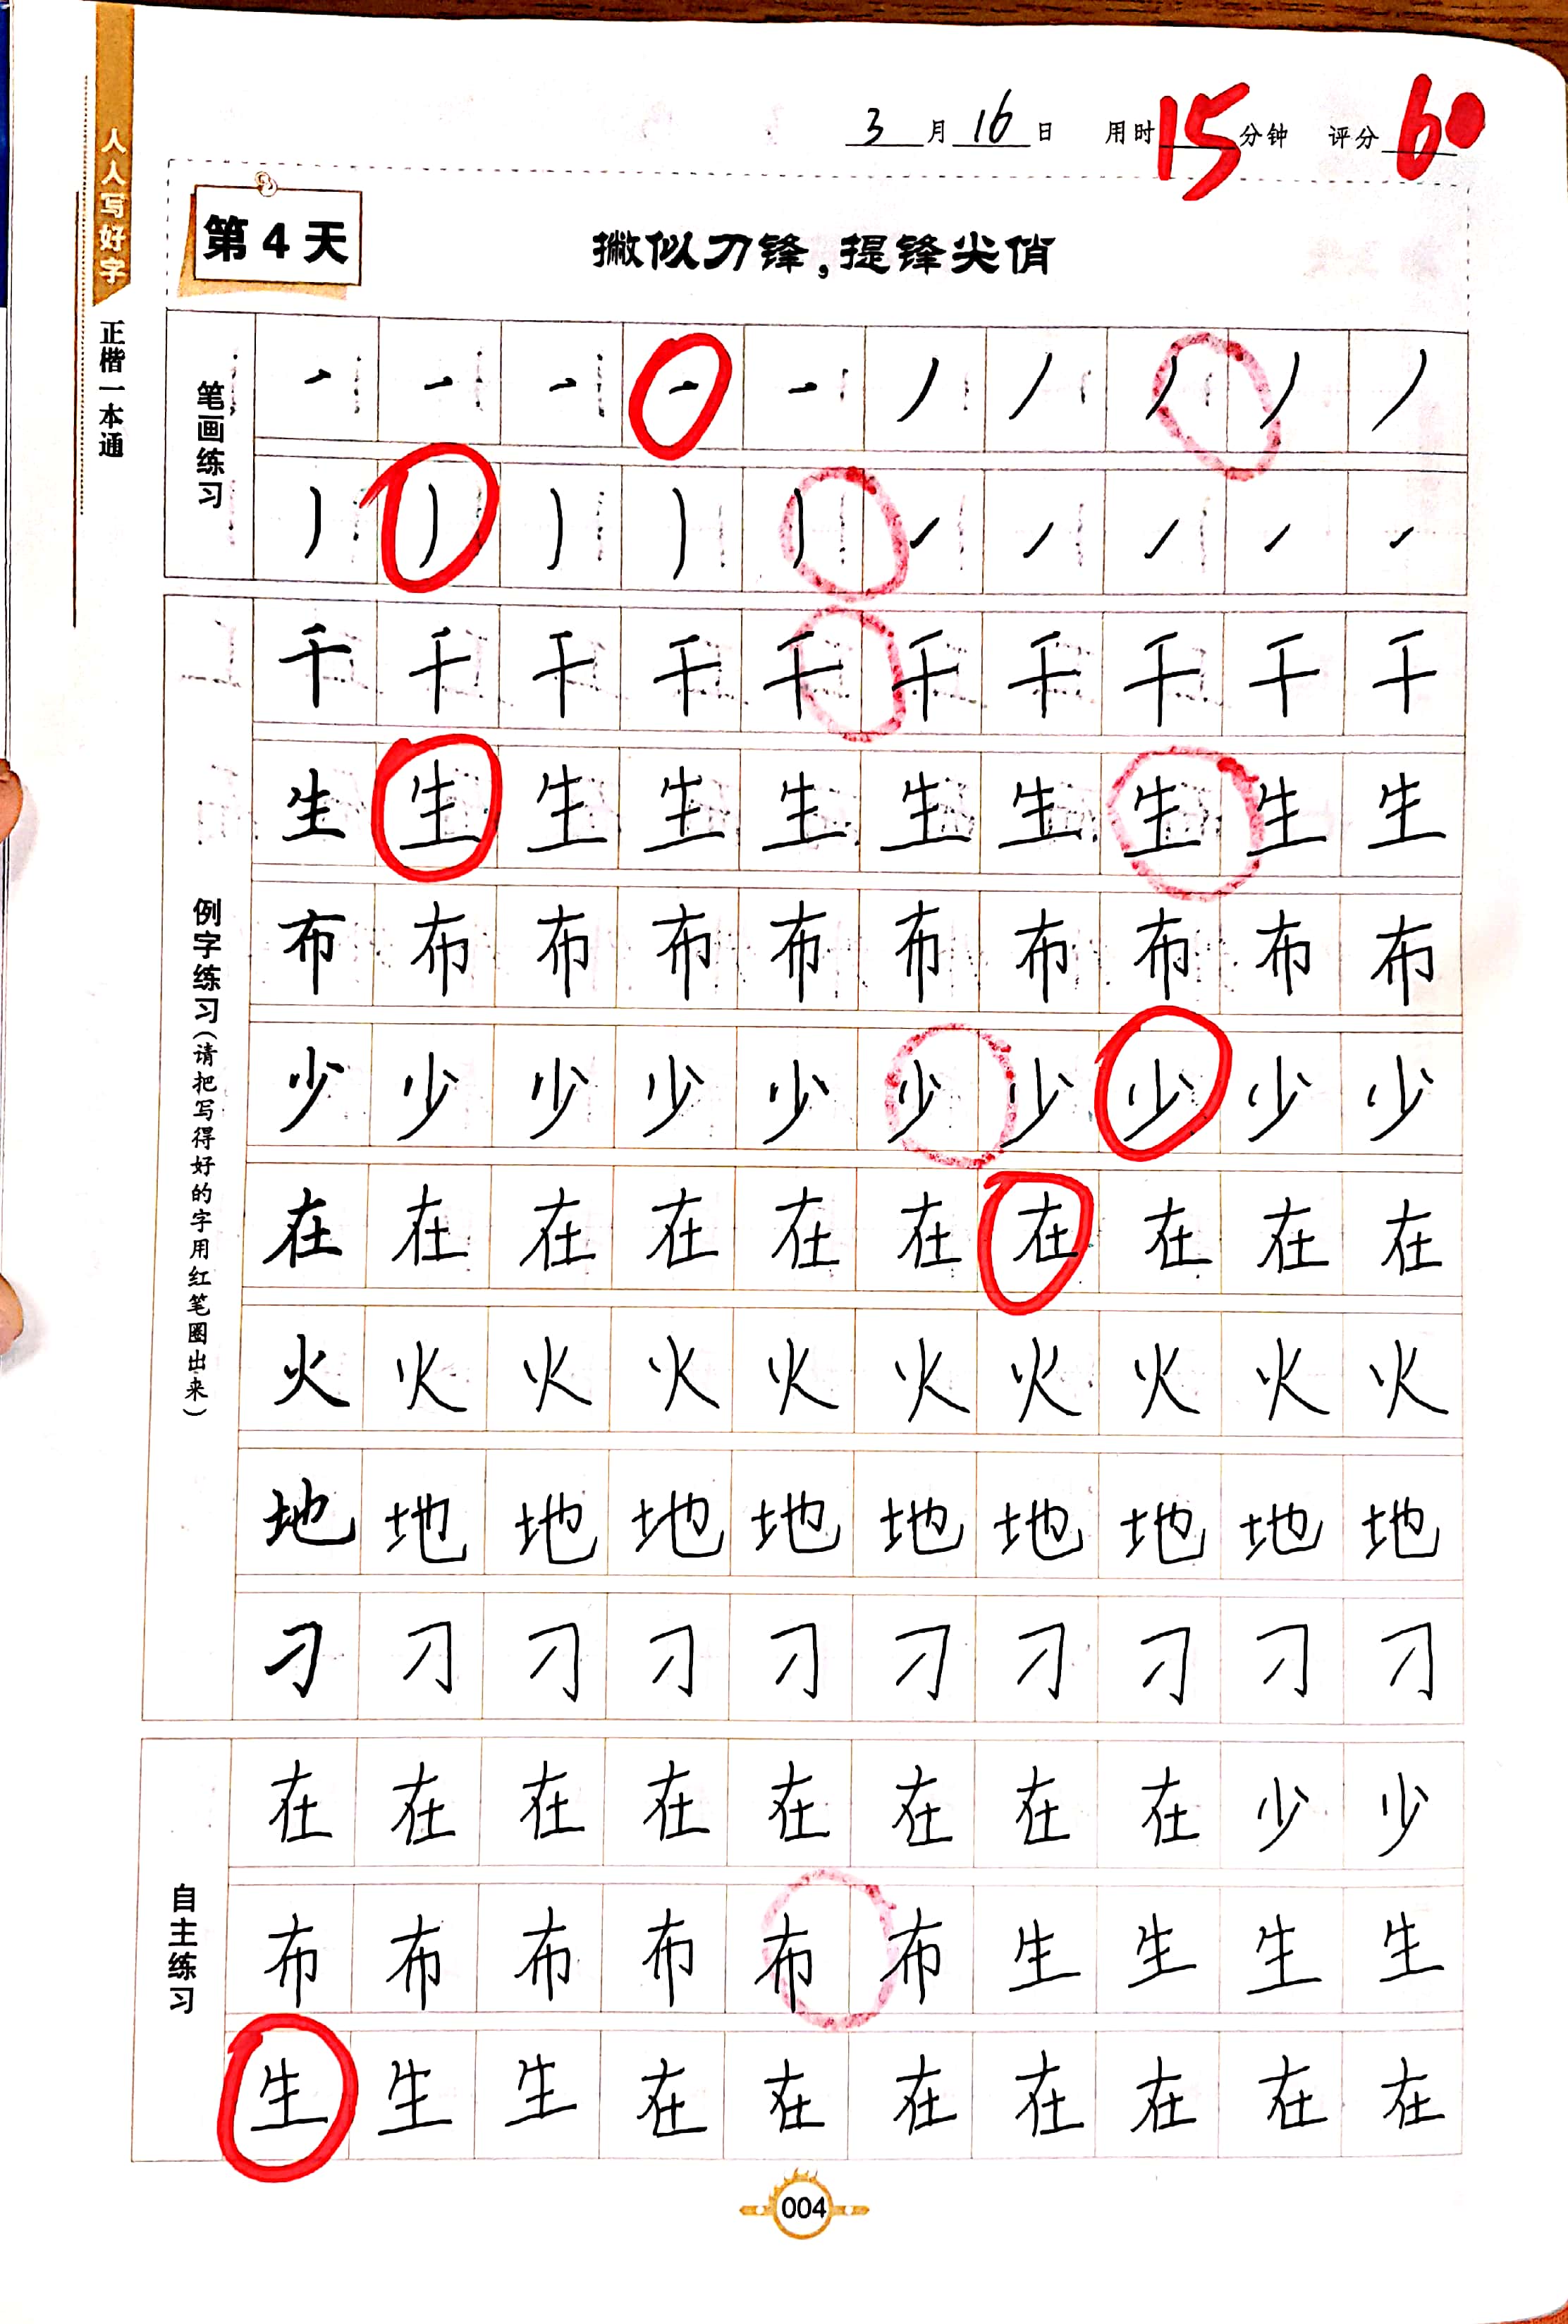 3月16日 用时15分钟 评分60
人人写好字
正楷一本通
第4天
撇似刀锋,提锋尖俏
笔画练习
例字练习(请把写得好的字用红笔圈出来)
千千千千千千千千千千
生生生生生生生生生生
布布布布布布布布布布
少少少少少少少少少少
在在在在在在在在在在
火火火火火火火火火火
地地地地地地地地地地
刁刁刁刁刁刁刁刁刁刁
自主练习
在在在在在在在在少少
布布布布布布生生生生
生生生在在在在在在在
004